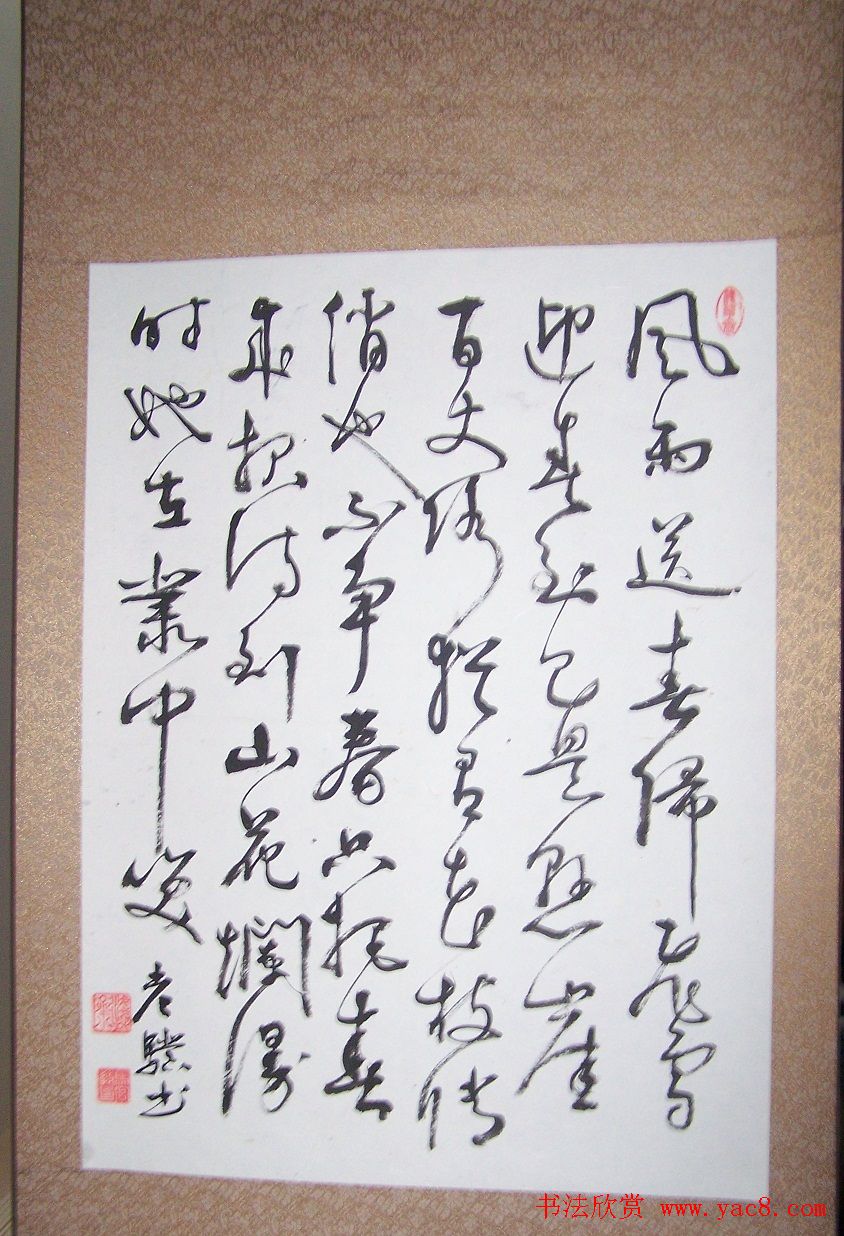 风雨送春归飞雪
迎春到已是悬崖
百丈冰犹有花枝俏
俏也不争春只把春
来报待到山花爛漫
时她在丛中笑
老骥书
书法欣赏 www.yac8.com